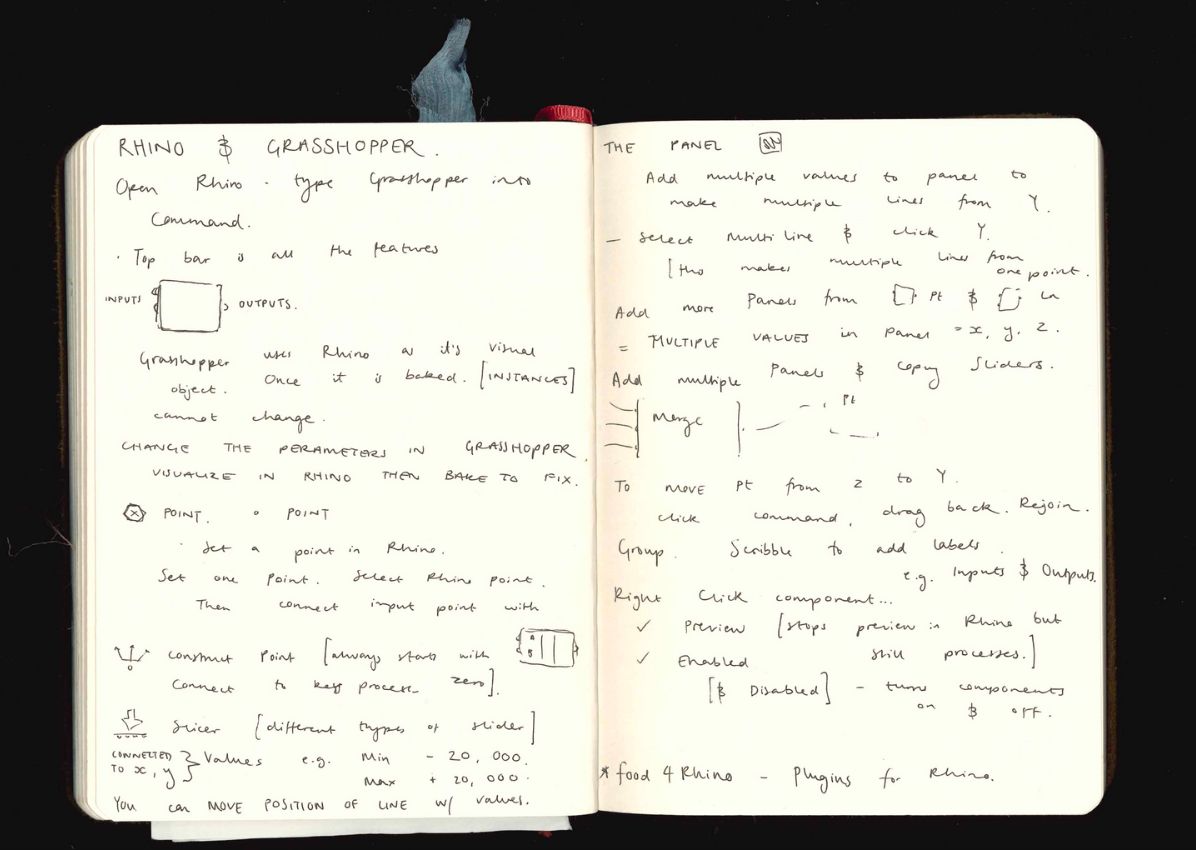 RHINO & GRASSHOPPER.
Open Rhino · type Grasshopper into
Command.
· Top bar is all the features
INPUTS OUTPUTS.
Grasshopper uses Rhino as it's visual
object. Once it is baked. [INSTANCES]
cannot change.
CHANGE THE PERAMETERS IN GRASSHOPPER
VISUALIZE IN RHINO THEN BAKE TO FIX.
POINT. o POINT
· Set a point in Rhino.
Set one point. Select Rhino point.
Then connect input point with
A
B
construct Point [always starts with
connect to keys process zero].
Slicer [different types of slider]
CONNECTED
TO x, y } Values e.g. Min - 20, 000.
Max + 20, 000.
YOU can MOVE POSITION OF LINE w/ values.
THE PANEL
Add multiple values to panel to
make multiple lines from Y.
– Select Multi Line & click Y.
[this makes multiple lines from
one point.
Add more Panels from Pt & Ln
= MULTIPLE VALUES in panel = x, y, z.
Add multiple Panels & copy Sliders.
Merge Pt
To move Pt from z to Y.
click command, drag back. Rejoin.
Group. Scribble to add labels.
e.g. Inputs & Outputs.
Right Click component...
✓ Preview [stops preview in Rhino but
✓ Enabled still processes.]
[& Disabled] – turns components
on & off.
* food 4 Rhino – Plugins for Rhino.